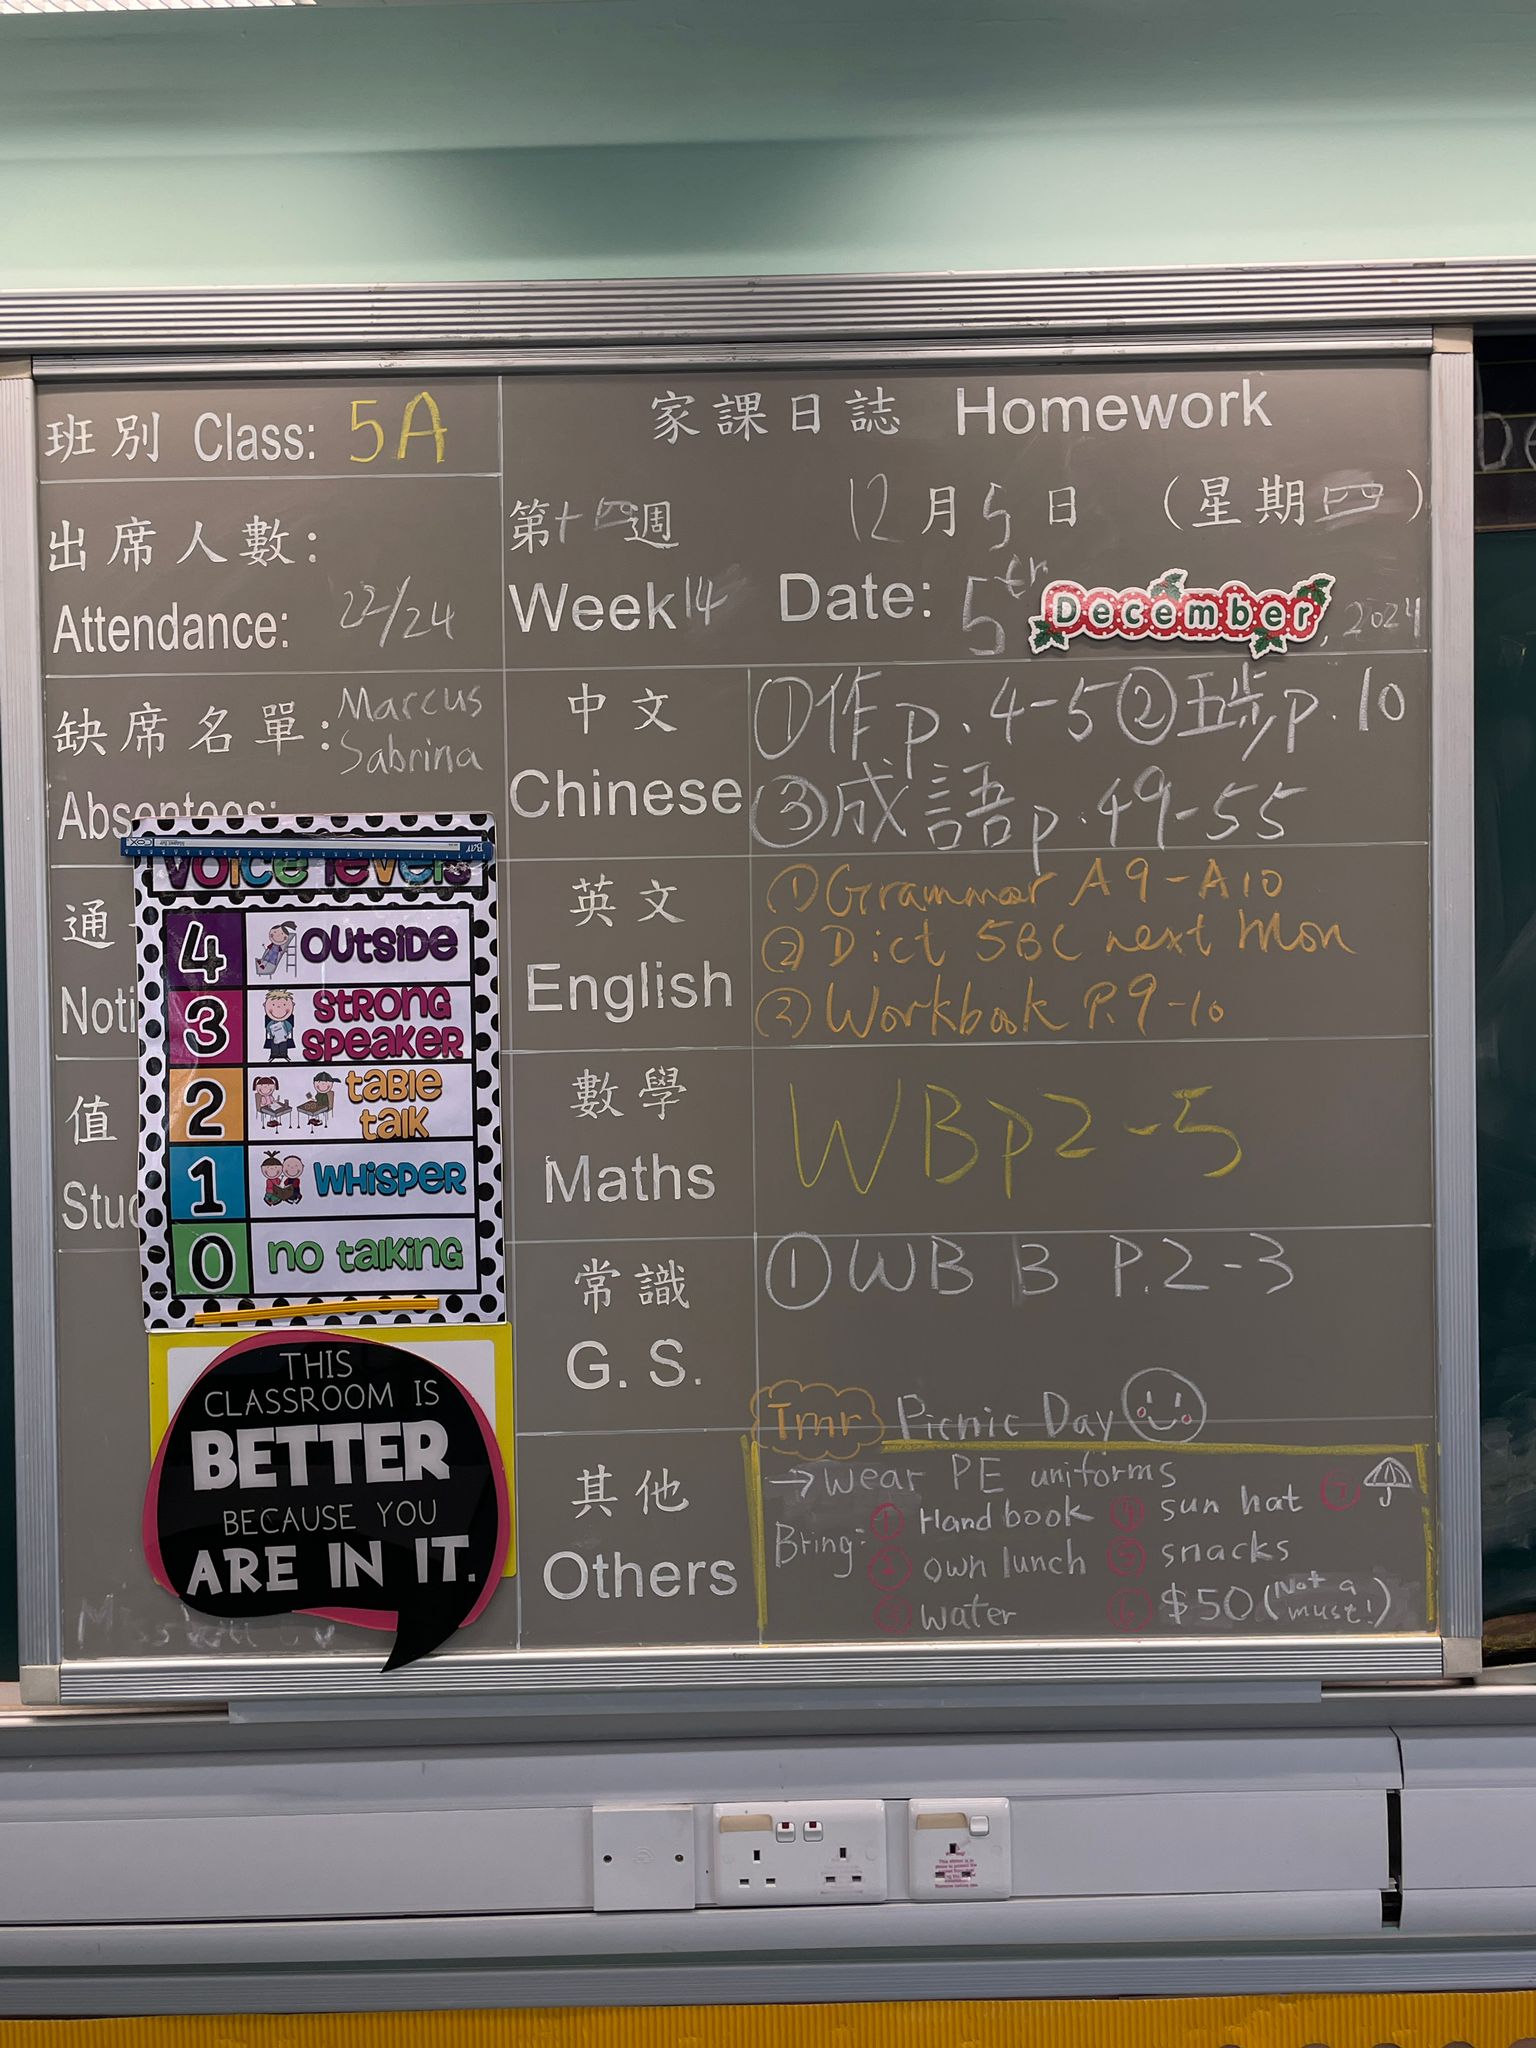 班別 Class: 5A
出席人數:
Attendance: 22/24
缺席名單: Marcus
Sabrina
Absentees:
通
Noti
值
Stud
家課日誌 Homework
第十四週 12月5日 (星期四)
Week 14 Date: 5th December, 2024
中文
Chinese
①作p.4-5②五步p.10
③成語p.49-55
英文
English
①Grammar A9-A10
② Dict 5BC next Mon
③ Workbook P.9-10
數學
Maths
WB p2-5
常識
G. S.
① WB B P.2-3
Tmr Picnic Day
其他
Others
→ wear PE uniforms
Bring: ① Handbook ④ sun hat ⑦
② own lunch ⑤ snacks
③ water ⑥ $50 (Not a must!)
voice levels
4 outside
3 strong speaker
2 table talk
1 whisper
0 no talking
THIS
CLASSROOM IS
BETTER
BECAUSE YOU
ARE IN IT.